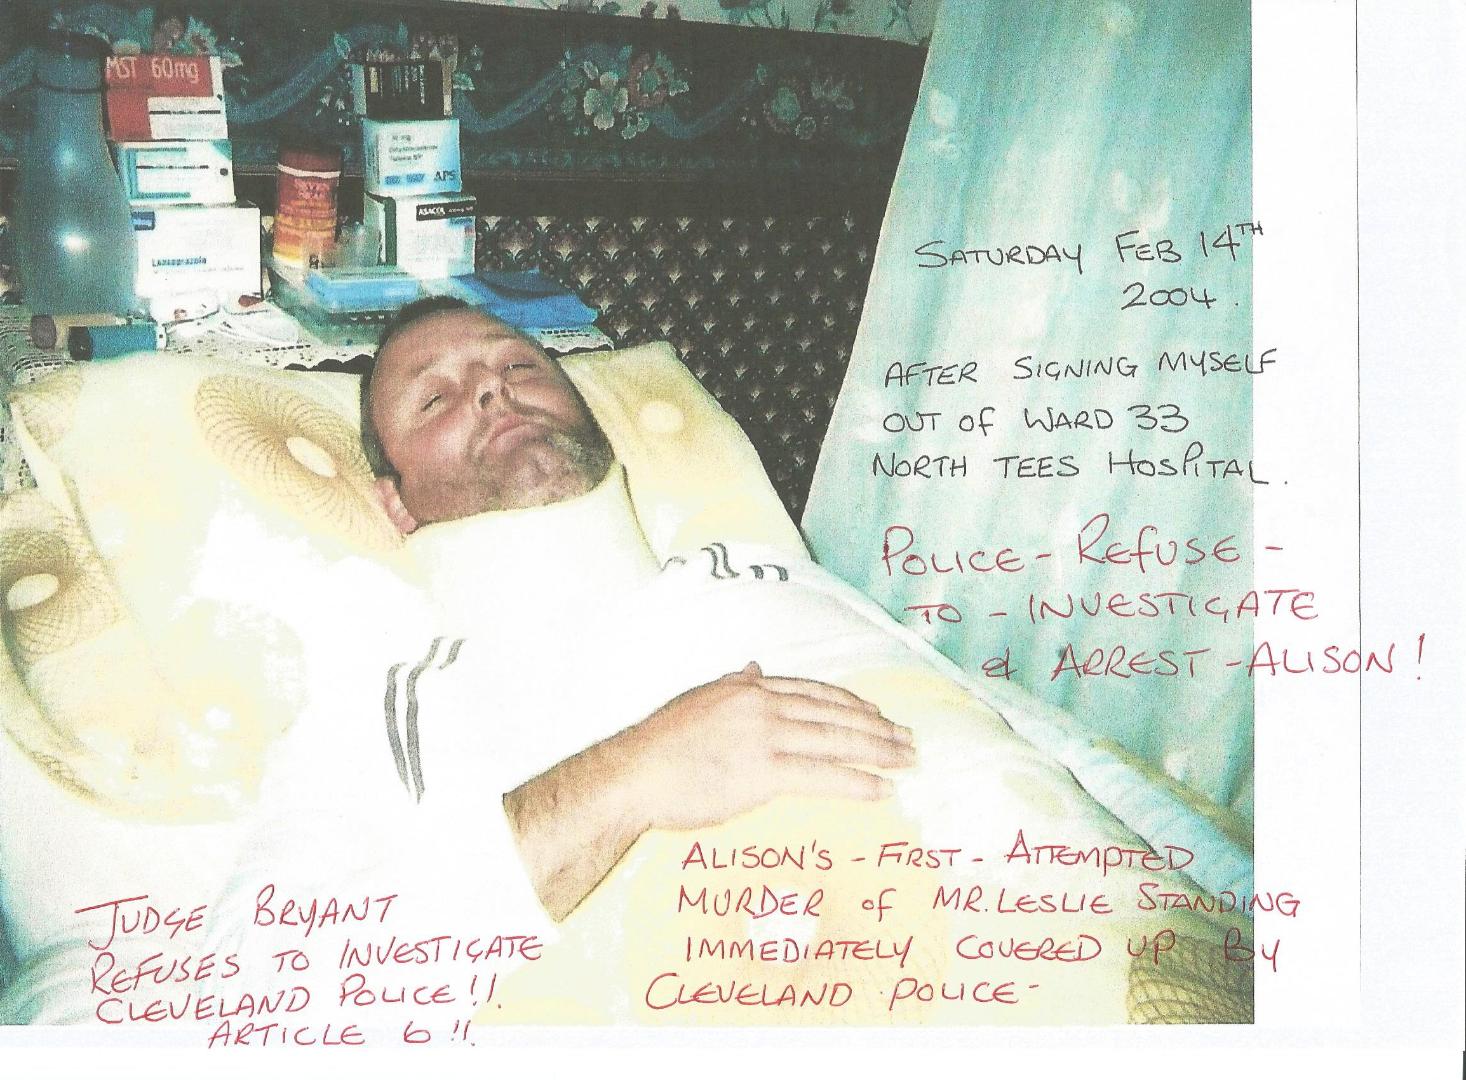 MST 60mg
APS
ASACOL
Lansoprazole
SATURDAY FEB 14TH
2004.
AFTER SIGNING MYSELF
OUT OF WARD 33
NORTH TEES HOSPITAL.
POLICE - REFUSE -
TO - INVESTIGATE
& ARREST - ALISON!
ALISON'S - FIRST - ATTEMPTED
MURDER of MR. LESLIE STANDING
IMMEDIATELY COVERED UP By
CLEVELAND POLICE -
JUDGE BRYANT
REFUSES TO INVESTIGATE
CLEVELAND POLICE!!
ARTICLE 6!!